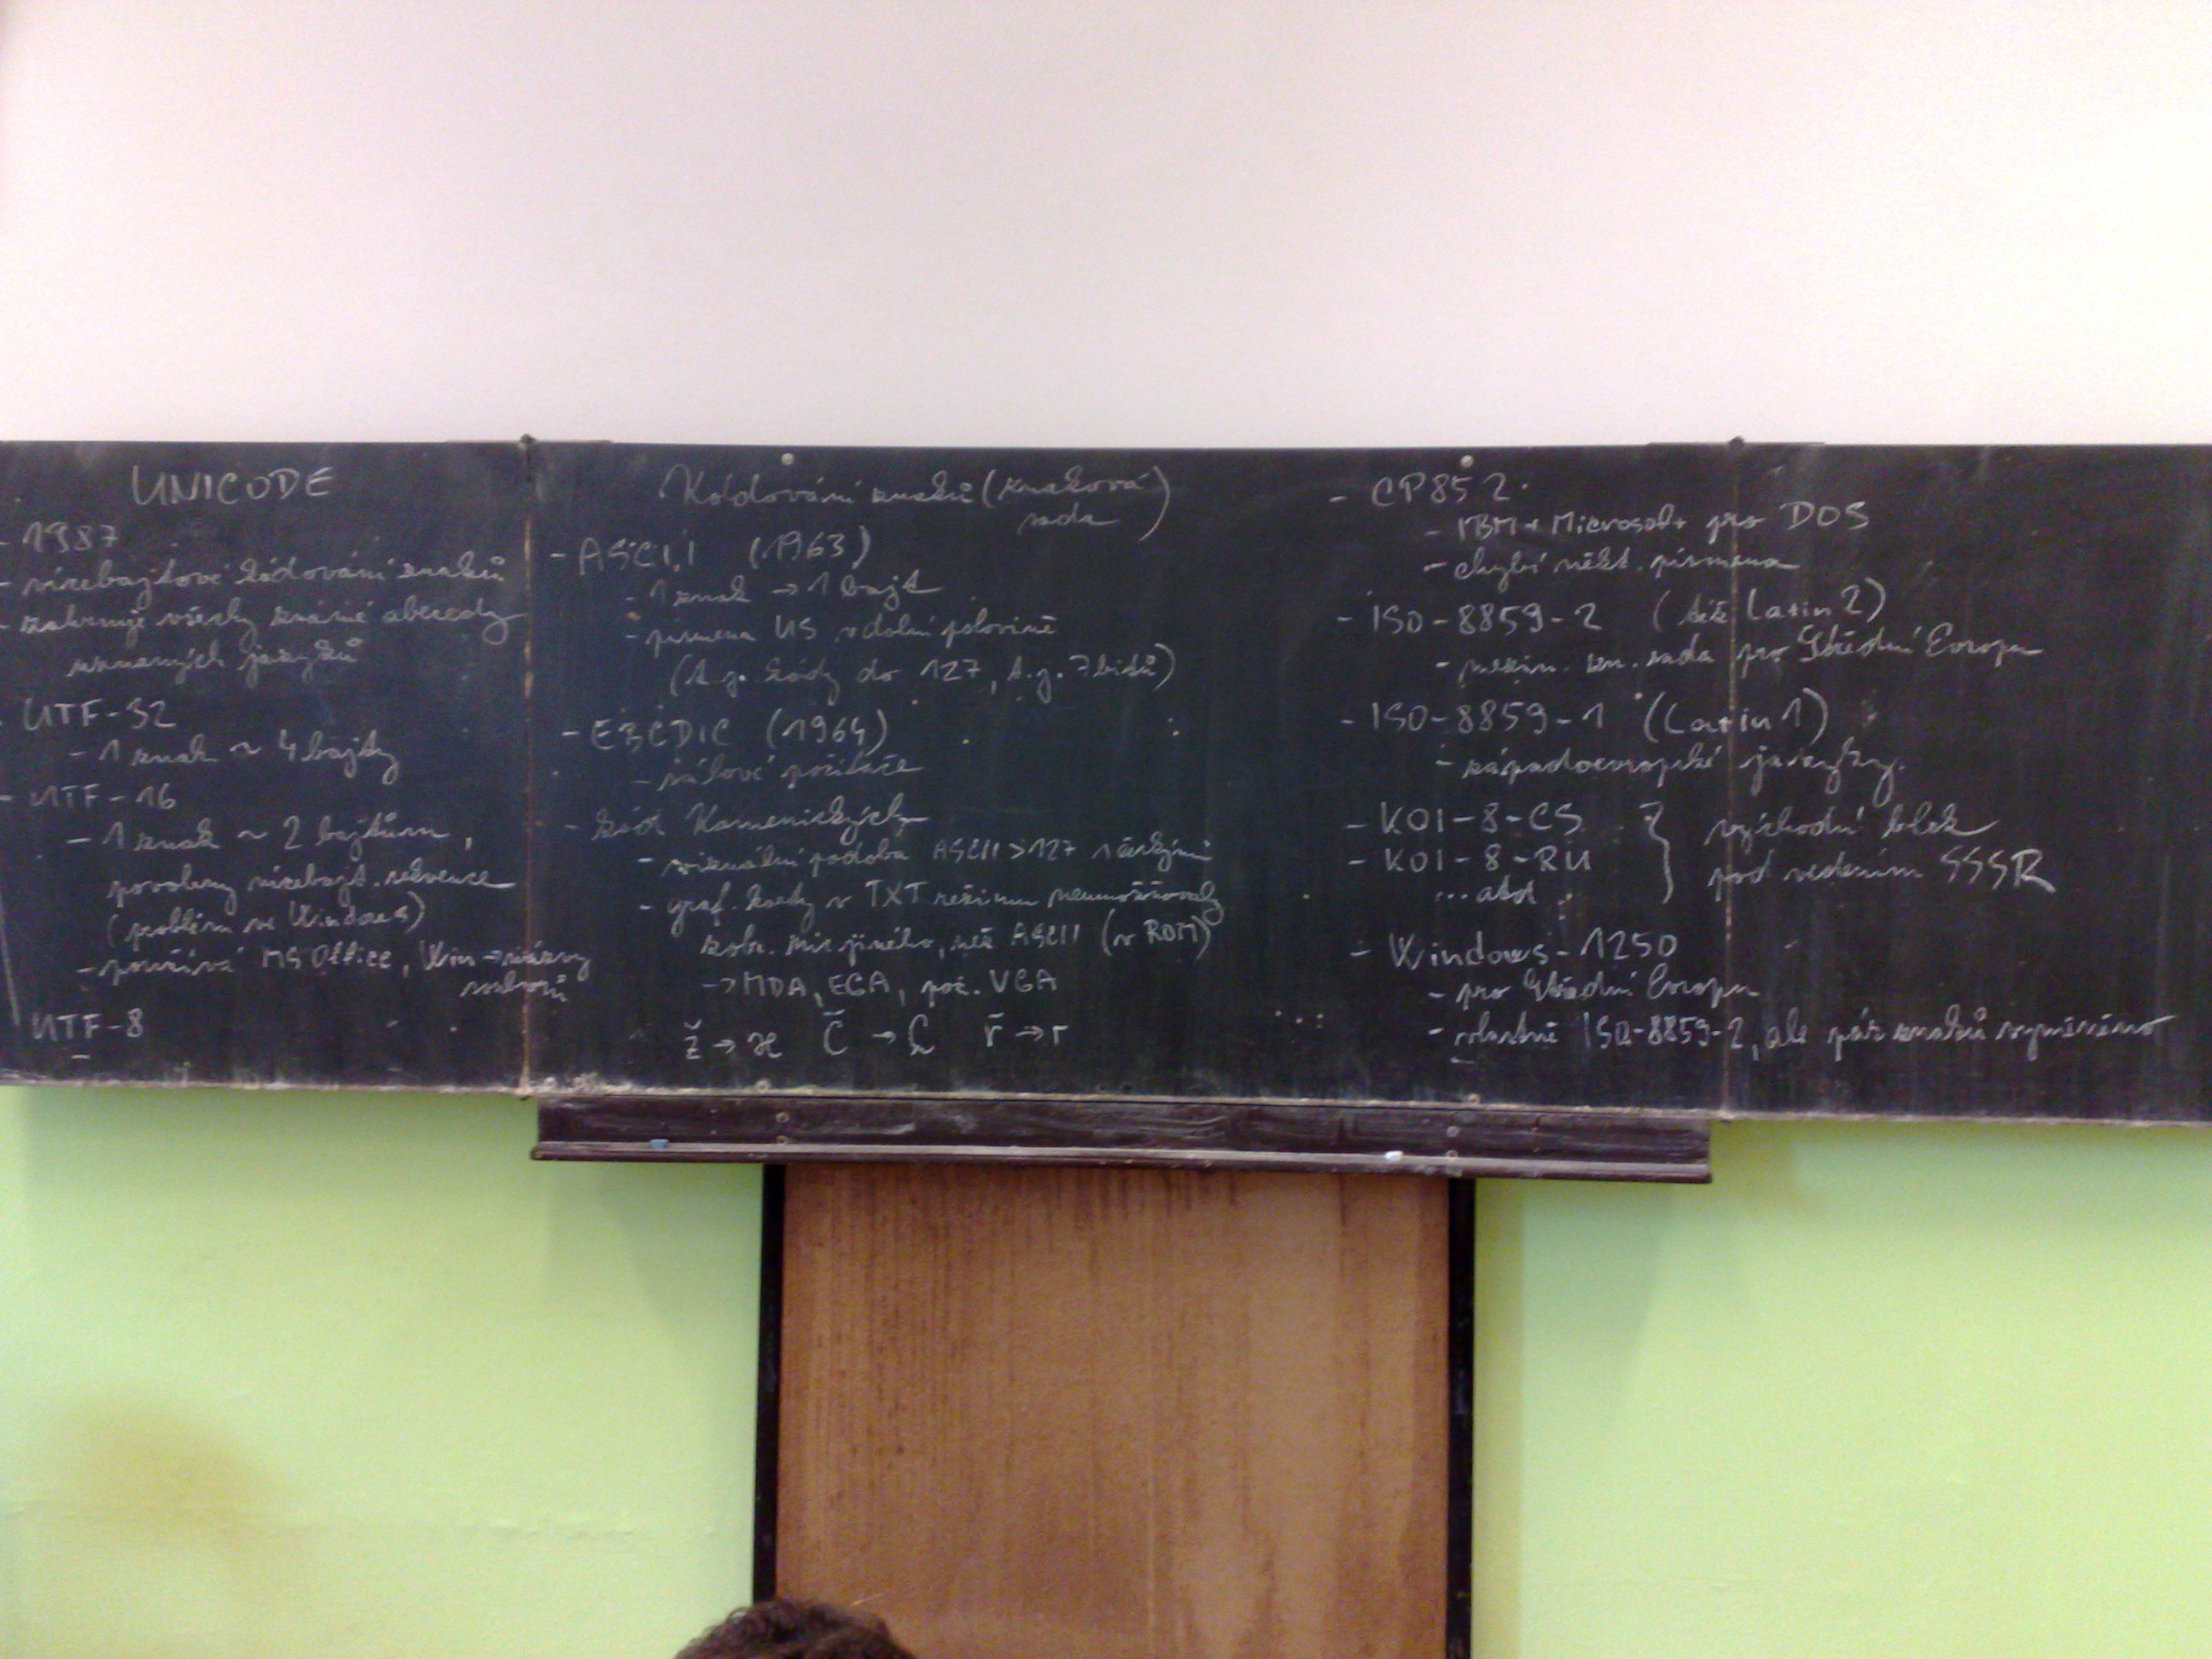 UNICODE
- 1987
- vícebajtové kódování znaků
- zahrnuje všechny známé abecedy
významných jazyků
- UTF-32
- 1 znak ~ 4 bajty
- UTF-16
- 1 znak ~ 2 bajtům,
povoleny vícebajt. sekvence
(problém ve Windows)
- používá MS Office, Win → názvy
souborů
UTF-8
-
Kódování znaků (znaková
sada)
- ASCII (1963)
- 1 znak → 1 bajt
- písmena US v dolní polovině
(t.j. kódy do 127, t.j. 7 bitů)
- EBCDIC (1964)
- sálové počítače
- kód Kamenických
- vizuální podoba ASCII > 127 s českými
- graf. karty v TXT režimu neumožňovaly
zobr. nic jiného, než ASCII (v ROM)
→ MDA, EGA, poč. VGA
ž → æ Č → ř → r
- CP852
- IBM + Microsoft pro DOS
- chybí někt. písmena
- ISO-8859-2 (též Latin 2)
- mezin. zn. sada pro Střední Evropu
- ISO-8859-1 (Latin 1)
- západoevropské jazyky.
- KOI-8-CS } východní blok
- KOI-8-RU pod vedením SSSR
... atd
- Windows-1250
- pro Střední Evropu
- vlastně ISO-8859-2, ale pár znaků vyměněno